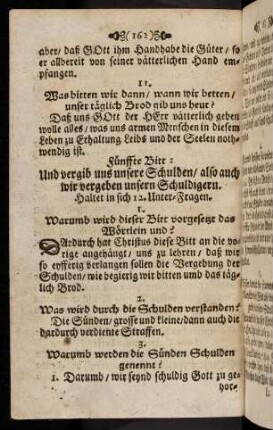 (162)
aber/ daß GOtt ihm Handhabe die Güter/ so
er allbereit von seiner vätterlichen Hand em-
pfangen.
11.
Was bitten wir dann/ wann wir betten/
unser täglich Brod gib uns heut?
Daß uns GOtt der HErr vätterlich geben
wolle alles/ was uns armen Menschen in diesem
Leben zu Erhaltung Leibs und der Seelen noth-
wendig ist.
Fünffte Bitt:
Und vergib uns unsere Schulden/ also auch
wir vergeben unsern Schuldigern.
Haltet in sich 12. Unter-Fragen.
1.
Warumb wird dieser Bitt vorgesetzt das
Wörtlein und?
DArdurch hat Christus diese Bitt an die vo-
rige angehängt/ uns zu lehren/ daß wir
so eyfferig verlangen sollen die Vergebung der
Schulden/ wie begierig wir bitten umb das täg-
lich Brod.
2.
Was wird durch die Schulden verstanden?
Die Sünden/ grosse und kleine/ dann auch die
dardurch verdiente Straffen.
3.
Warumb werden die Sünden Schulden
genennt?
1. Darumb/ wir seynd schuldig Gott zu ge-
hor-